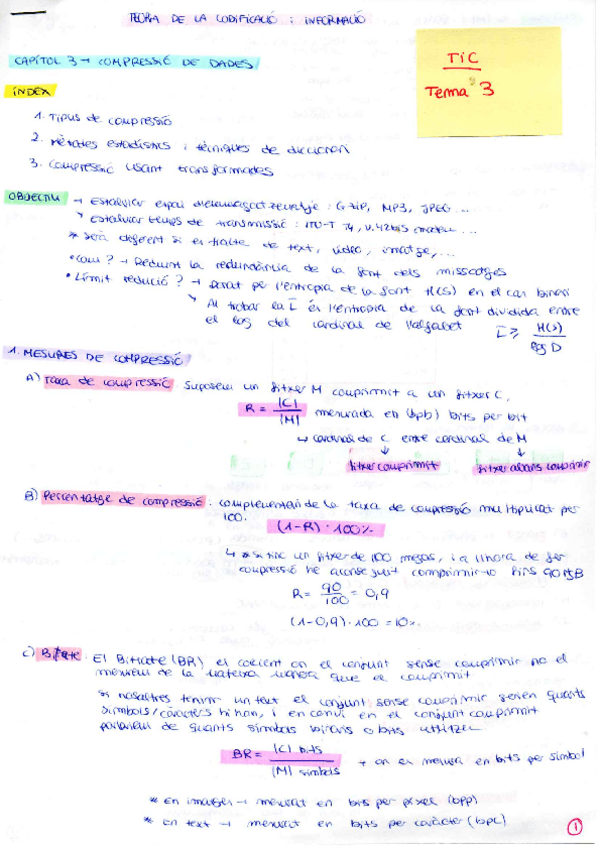 TEORIA DE LA CODIFICACIÓ i INFORMACIÓ
TIC
Tema 3
CAPÍTOL 3 → COMPRESSIÓ DE DADES
ÍNDEX
1. Tipus de compressió
2. Mètodes estadístics i tècniques de diccionari
3. Compressió usant transformades
OBJECTIU → Estalviar espai d'emmagatzematge: GZIP, MP3, JPEG...
↘ estalviar temps de transmissió: ITU-T T4, V.42bis
* Serà diferent si es tracta de text, vídeo, imatge,...
• Com? → Reduint la redundància de la font dels missatges
• Límit reducció? → Donat per l'entropia de la font H(S) en el cas binari
↘ Al trobar la L̄ és l'entropia de la font dividida entre
el log del cardinal de l'alfabet L̄ ≥ H(S) / log D
1. MESURES DE COMPRESSIÓ
A) Taxa de compressió Suposem un fitxer M comprimit a un fitxer C,
R = |C| / |M| mesurada en (bpb) bits per bit
↳ cardinal de C entre cardinal de M
fitxer comprimit fitxer abans comprimir
B) Percentatge de compressió: complementari de la taxa de compressió multiplicat per
100. (1-R) · 100%
↳ * si tinc un fitxer de 100 megas, i a l'hora de fer
compressió he aconseguit comprimir-lo fins 90 MB
R = 90/100 = 0,9
(1-0,9) · 100 = 10%
C) Bitrate: El Bitrate (BR) es cocient on el conjunt sense comprimir no el
mesurem de la mateixa manera que el comprimit
si nosaltres tenim un text el conjunt sense comprimir serien quants
símbols/caràcters hi han, i en canvi en el conjunt comprimit
parlariem de quants símbols binaris o bits utilitzem
BR = |C| bits / |M| símbols → on es mesura en bits per símbol
* En imatges → mesurat en bits per píxel (bpp)
* En text → mesurat en bits per caràcter (bpc)
1